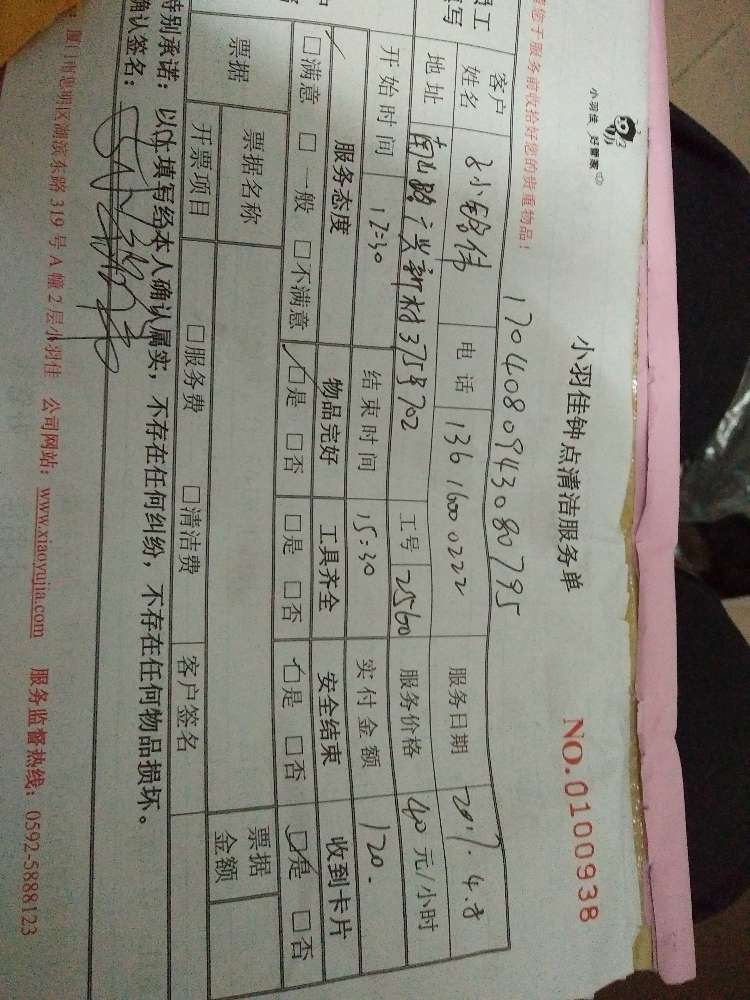 小羽佳 好管家
小羽佳钟点清洁服务单
NO.0100938
您于服务前收拾好您的贵重物品！
1704080943080795
客户姓名 电话 13616000222 服务日期 2017.4.8
地址 南山路 工号 2560 服务价格 40 元/小时
开始时间 12:30 结束时间 15:30 实付金额 120.
服务态度 物品完好 工具齐全 安全结束 收到卡片
□满意 □一般 □不满意 □是 □否 □是 □否 □是 □否 □是 □否
票据 票据名称 票据金额
开票项目 □服务费 □清洁费 客户签名
特别承诺：以上填写经本人确认属实，不存在任何纠纷，不存在任何物品损坏。
确认签名：
厦门市思明区湖滨东路 319 号 A 幢 2 层小羽佳 公司网站：www.xiaoyujia.com 服务监督热线：0592-5888123